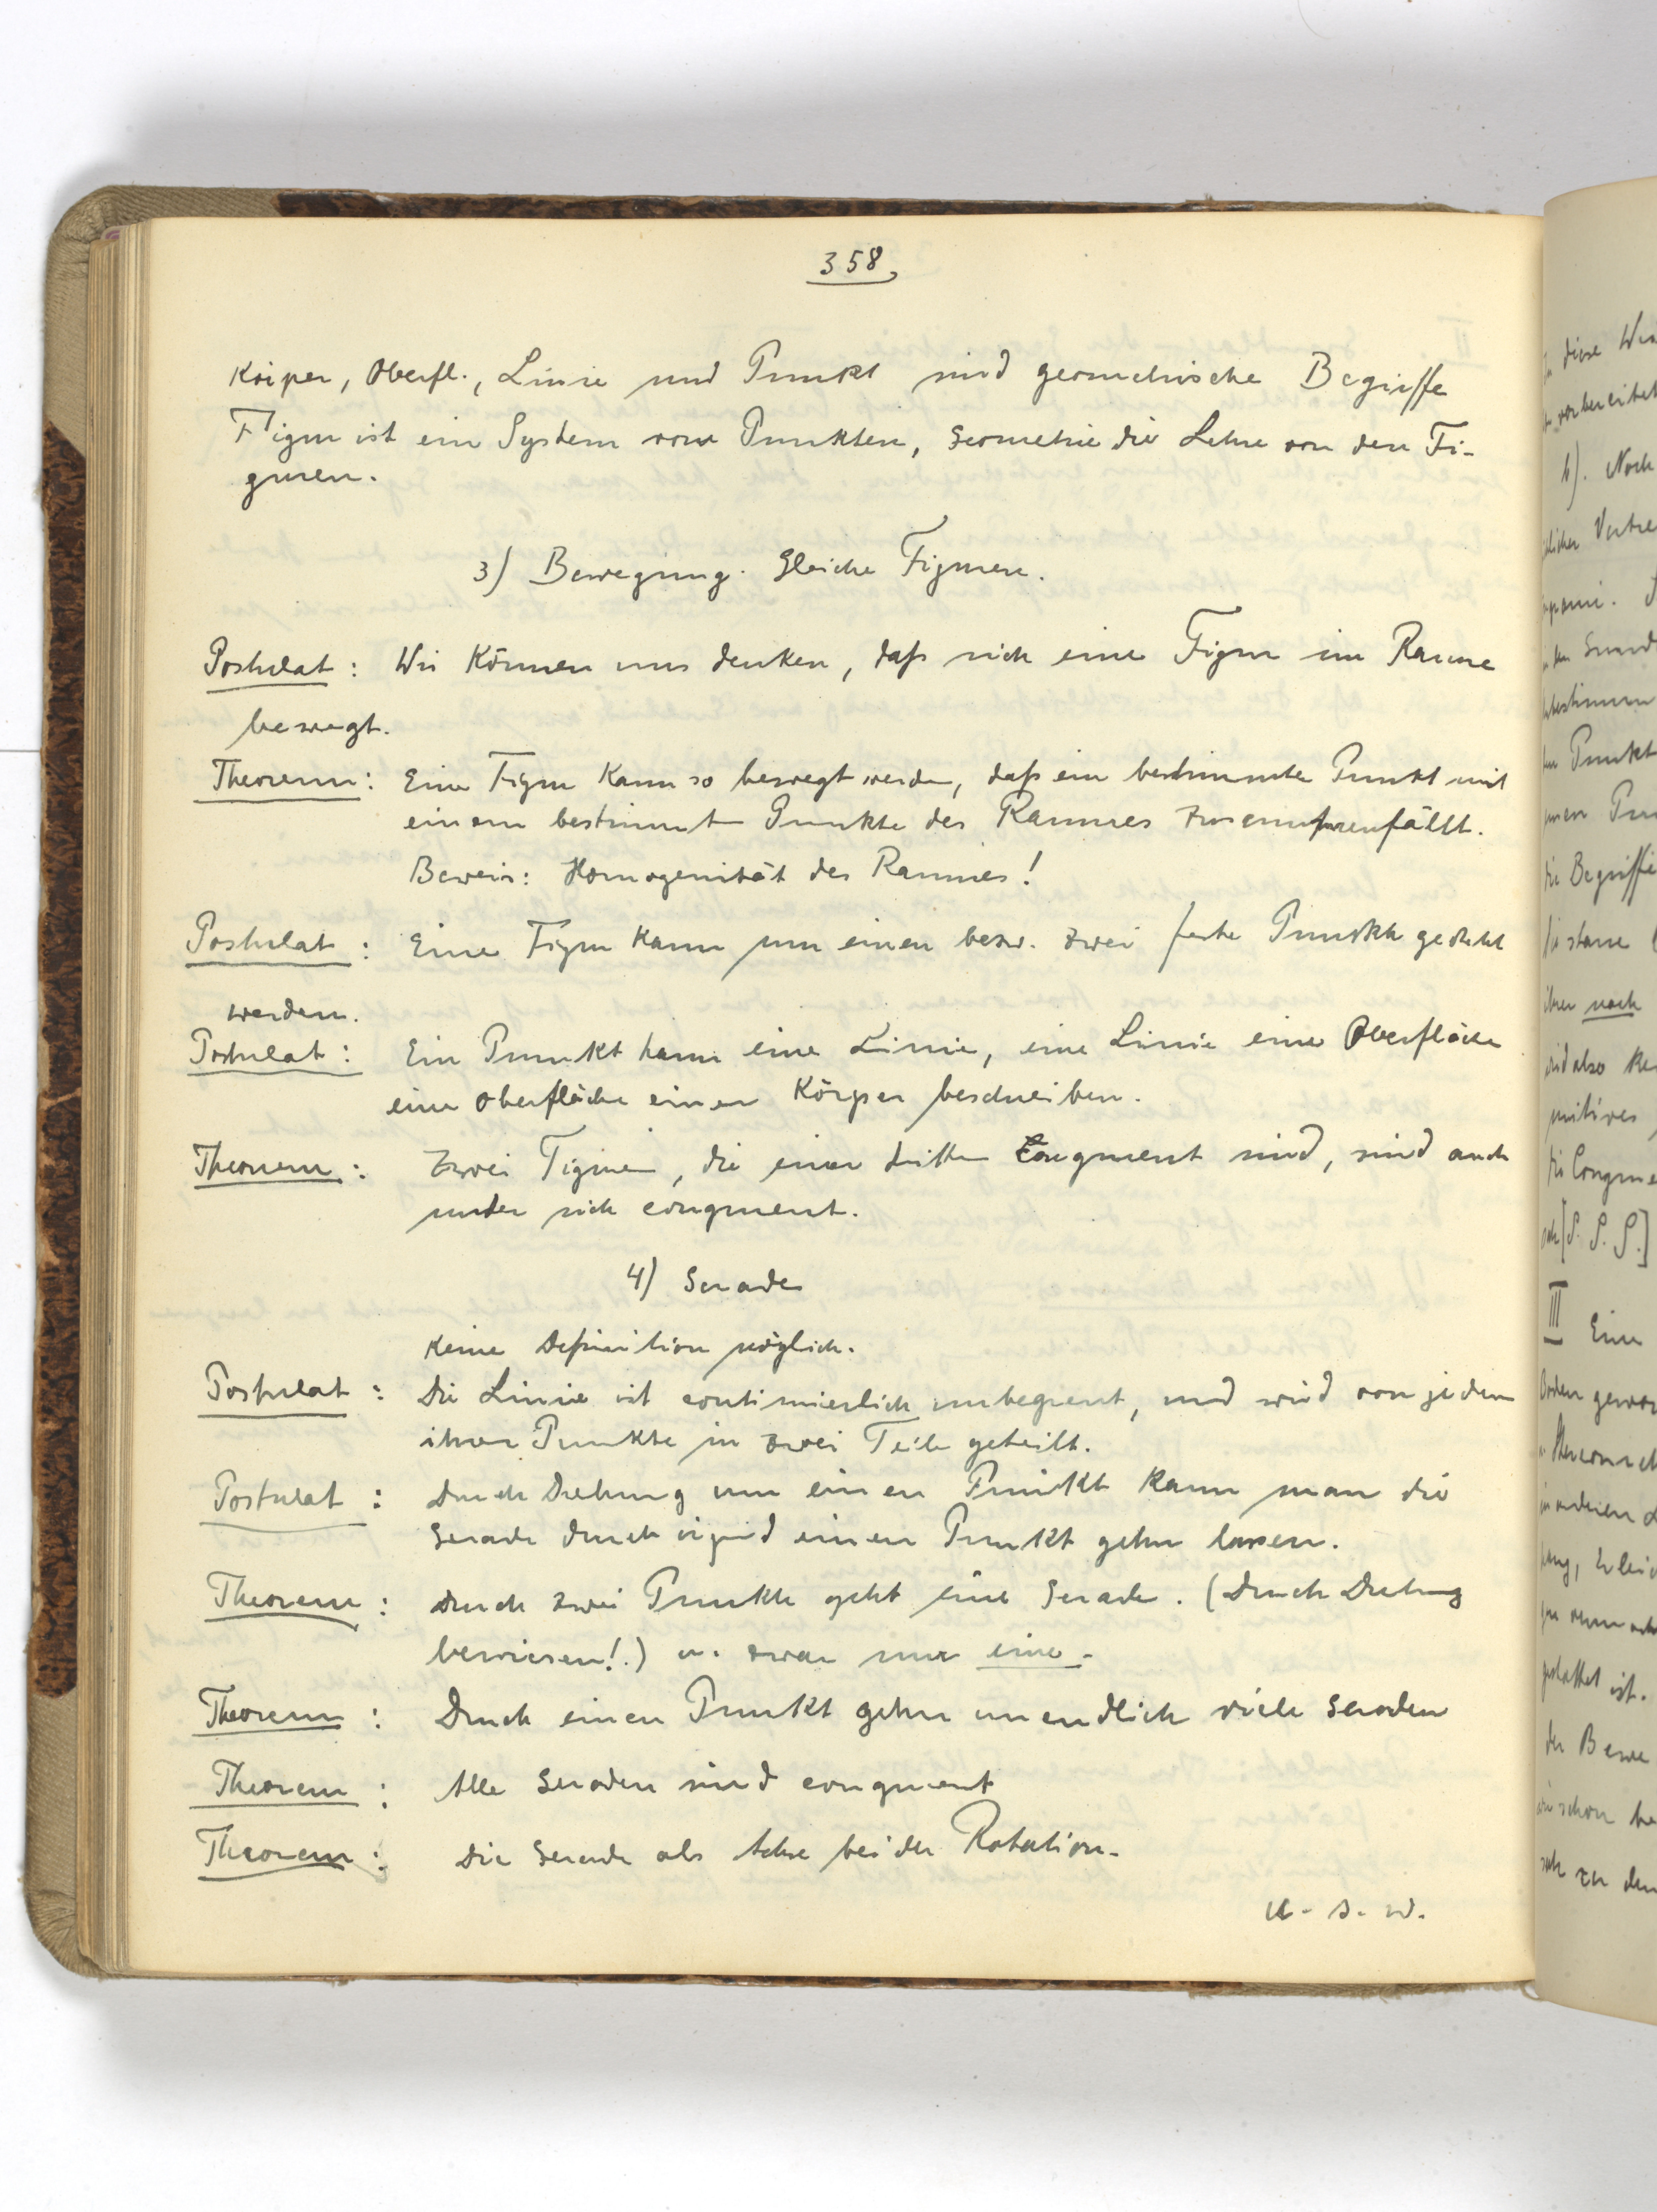 358,
Körper, Oberfl., Linie und Punkt sind geometrische Begriffe
Figur ist ein System von Punkten, Geometrie die Lehre von den Fi-
guren.
3) Bewegung. Gleiche Figuren.
Postulat: Wir können uns denken, daß sich eine Figur im Raume
bewegt.
Theorem: Eine Figur kann so bewegt werden, daß ein bestimmter Punkt mit
einem bestimmt Punkte des Raumes zusammenfällt.
Beweis: Homogenität des Raumes!
Postulat: Eine Figur kann um einen bezw. zwei feste Punkte gedreht
werden.
Postulat: Ein Punkt kann eine Linie, eine Linie eine Oberfläche
eine Oberfläche einen Körper beschreiben.
Theorem: Zwei Figuren, die einer dritten congruent sind, sind auch
unter sich congruent.
4) Gerade
Keine Definition möglich.
Postulat: Die Linie ist continuierlich unbegrenzt, und wird von jedem
ihrer Punkte in zwei Teile geteilt.
Postulat: Durch Drehung um einen Punkt kann man die
Gerade durch irgend einen Punkt gehn lassen.
Theorem: Durch zwei Punkte geht eine Gerade. (Durch Drehung
bewiesen!.) u. zwar nur eine.
Theorem: Durch einen Punkt gehn unendlich viele Geraden
Theorem: Alle Geraden sind congruent
Theorem: Die Gerade als Achse bei der Rotation.
u. s. w.
diese
vorbereitet
b). Noch
Punkt
die Begriffe
starre
ihrer noch
wird also
III Eine
gestattet ist.
der Bewe
schon be
zu den